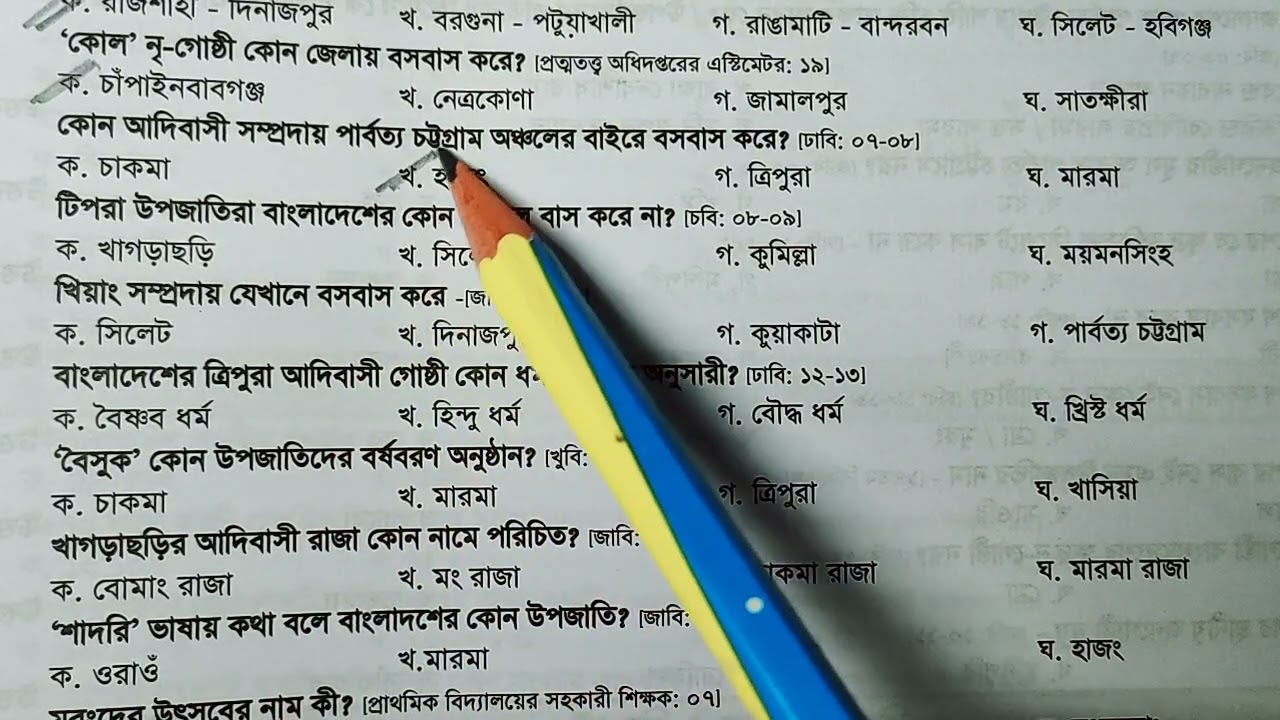 ক. রাজশাহী - দিনাজপুর খ. বরগুনা - পটুয়াখালী গ. রাঙামাটি - বান্দরবন ঘ. সিলেট - হবিগঞ্জ
‘কোল’ নৃ-গোষ্ঠী কোন জেলায় বসবাস করে? [প্রত্মতত্ত্ব অধিদপ্তরের এস্টিমেটর: ১৯]
ক. চাঁপাইনবাবগঞ্জ খ. নেত্রকোণা গ. জামালপুর ঘ. সাতক্ষীরা
কোন আদিবাসী সম্প্রদায় পার্বত্য চট্টগ্রাম অঞ্চলের বাইরে বসবাস করে? [ঢাবি: ০৭-০৮]
ক. চাকমা খ. গ. ত্রিপুরা ঘ. মারমা
টিপরা উপজাতিরা বাংলাদেশের কোন বাস করে না? [চবি: ০৮-০৯]
ক. খাগড়াছড়ি খ. গ. কুমিল্লা ঘ. ময়মনসিংহ
খিয়াং সম্প্রদায় যেখানে বসবাস করে -
ক. সিলেট খ. গ. কুয়াকাটা গ. পার্বত্য চট্টগ্রাম
বাংলাদেশের ত্রিপুরা আদিবাসী গোষ্ঠী কোন অনুসারী? [ঢাবি: ১২-১৩]
ক. বৈষ্ণব ধর্ম খ. হিন্দু ধর্ম গ. বৌদ্ধ ধর্ম ঘ. খ্রিস্ট ধর্ম
‘বৈসুক’ কোন উপজাতিদের বর্ষবরণ অনুষ্ঠান? [খুবি:
ক. চাকমা খ. মারমা গ. ত্রিপুরা ঘ. খাসিয়া
খাগড়াছড়ির আদিবাসী রাজা কোন নামে পরিচিত? [জাবি:
ক. বোমাং রাজা খ. মং রাজা রাজা ঘ. মারমা রাজা
‘শাদরি’ ভাষায় কথা বলে বাংলাদশের কোন উপজাতি? [জাবি:
ক. ওরাওঁ খ.মারমা ঘ. হাজং
উৎসবের নাম কী? [প্রাথমিক বিদ্যালয়ের সহকারী শিক্ষক: ০৭]